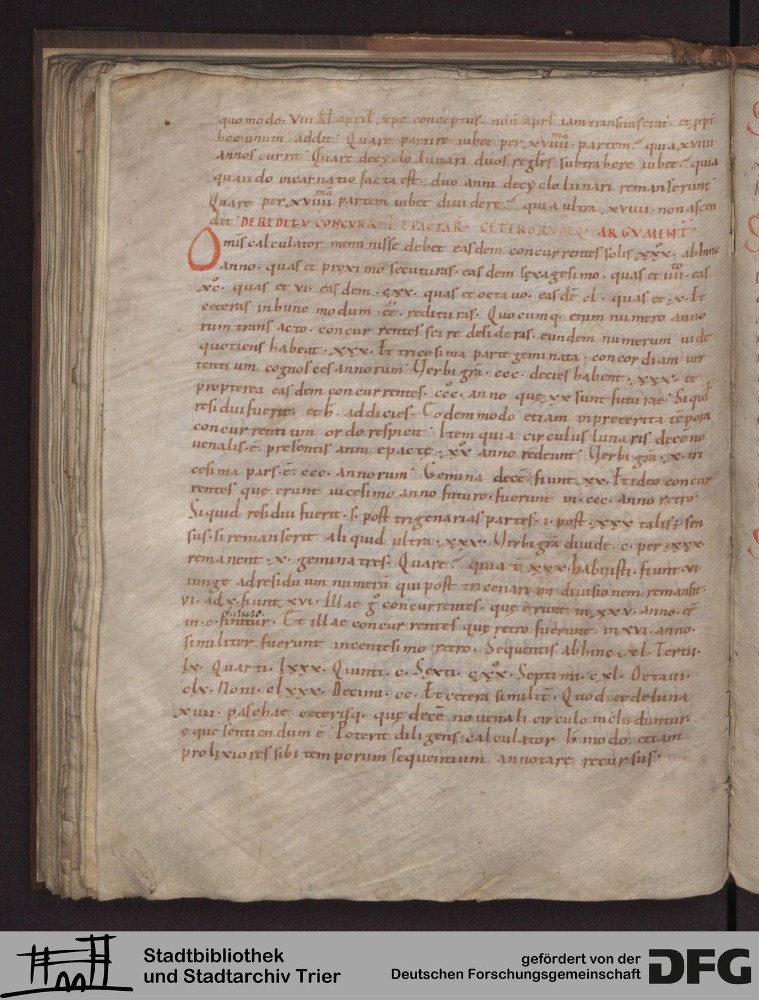 quomodo · VIII kl april · xpc conceptus · non aprl iam transituserat · et ppi
hoc unum addit · Quare partire iubet per xviiii · partem? quia xviiii
annos currit · Quare decyclo lunari duos subtrahere iubet? quia
quando incarnatio facta est · duo anni decyclo lunari remanserunt
Quare per xviiii partem iubet diuidere? quia ultra · xviiii · non ascen
dit · DE REDITV CONCVRR ET EPACTAR · CETERORVMQ · ARGVMENT
Omis calculator meminisse debet easdem concurrentes solis xxx · abhinc
anno · quas et proximo secuturas · easdem sexagesimo · quas et iiii · eas
xc · quas et vi · easdem · cxx · quas et octauo · easdē cl · quas et · x · Et
ceteras in hunc modum · ēē · redituras · Quocumq · enim numero anno
rum transacto · concurrentes scire desideras · eundem numerum uide
quotiens habeat · xxx · Et tricesima parte geminata · concordiam uer
tentium cognosces annorum · Uerbi grā · ccc · decies habent · xxx · et
propterea easdem concurrentes · ccc · anno quę xx sunt futurae · Siquid
residui fuerit · et h · addicies · Eodem modo etiam inpreterita tēpora
concurrentium ordo respicit · Item quia circulus lunaris deceno
uenalis · ē · presentis anni epactę · xx anno redeunt · Uerbi grā · x · tri
cesima pars · ē · ccc · annorum · Gemina decē · fiunt · xx · Et ideo concur
rentes quę erunt uicesimo anno futuro · fuerunt in · ccc · anno retro ·
Siquid residui fuerit · s · post trigenarias partes · i · post · xxx · talis ; sen
sus · si remanserit aliquid ultra · xxx · Uerbi grā diuide · c · per · xxx ·
remanent · x · gemina tres · Quare? quia t xxx · habuisti · fiunt · vi
iunge ad residuum numerū qui post tricenariorū diuisionem remansit ·
vi · ad x · fiunt xvi · Illae g concurrentes · quę erunt in xxv · anno · q
in · c · futuro finitur · Et illae concurrentes quę retro fuerunt in xvi · anno ·
similiter fuerunt incentesimo retro · Sequentis abhinc · xl · Tertii ·
lx · Quarti · lxxx · Quinti · c · Sexti · cxx · Septimi · cxl · Octaui ·
clx · Noni · clxxx · Decimi · cc · Et cetera similit · Quod et de luna
xiiii · paschae ceterisq · quę decē nouenali circulo includuntur
eque sentiendum ē · Poterit diligens calculator h modo etiam
prolixiores sibi temporum sequentium annotare recursus ·
Stadtbibliothek
und Stadtarchiv Trier
gefördert von der
Deutschen Forschungsgemeinschaft
DFG